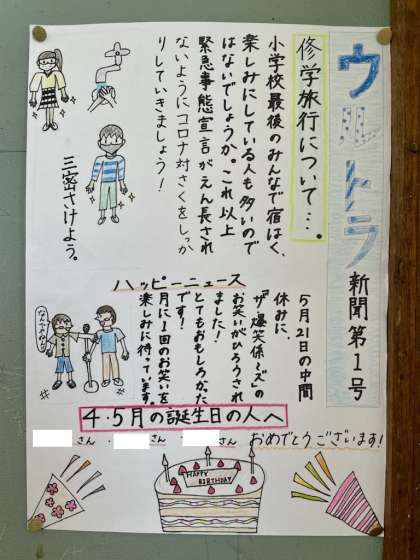 ウルトラ新聞第1号
修学旅行について…。
小学校最後のみんなで宿はく、
楽しみにしている人も多いので
はないでしょうか。これ以上
緊急事態宣言がえん長され
ないようにコロナ対さくをしっか
りしていきましょう！
三密さけよう。
ハッピーニュース
5月21日の中間
休みに、
「ザ・爆笑係ーズ」の
お笑いがひろうされ
ました！
とてもおもしろかった
です！
月に1回のお笑いを
楽しみに待っています。
なんでやねん
4・5月の誕生日の人へ
さん・
さん・
さん
おめでとうございます！
HAPPY
BIRTHDAY